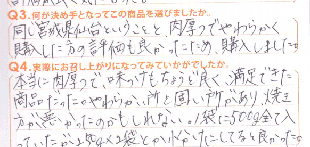 Q3.何が決め手となってこの商品を選びましたか。
同じ宮城県仙台ということと、肉厚でやわらかく
購入した方の評価も良かったため、購入しました。
Q4.実際にお召し上がりになってみていかがでしたか。
本当に肉厚で味つけもちょうど良く、満足できた
商品だった。やわらかい所と固い所があり、焼き
方が悪かったのかもしれない。1袋に500g全て入
っていたが250g×2袋とか小分けにしてると良かった。